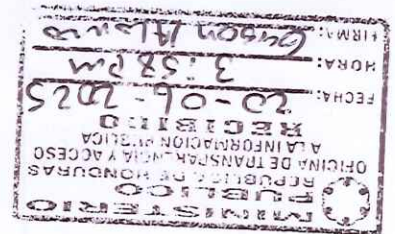 MINISTERIO
PUBLICO
REPUBLICA DE HONDURAS
OFICINA DE TRANSPARENCIA Y ACCESO
A LA INFORMACION PUBLICA
RECIBIDO
FECHA: 20-06-2025
HORA: 3:58 pm
FIRMA: